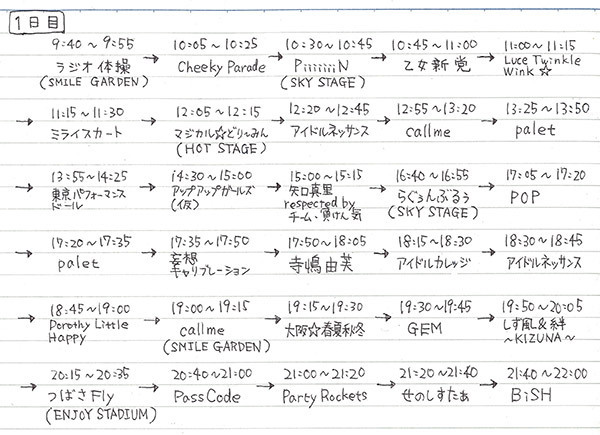 1日目
9:40～9:55 → 10:05～10:25 → 10:30～10:45 → 10:45～11:00 → 11:00～11:15
ラジオ体操 Cheeky Parade PiiiiiiiN 乙女新党 Luce Twinkle
(SMILE GARDEN) (SKY STAGE) Wink☆
→ 11:15～11:30 → 12:05～12:15 → 12:20～12:45 → 12:55～13:20 → 13:25～13:50
ミライスカート マジカル☆どりーみん アイドルネッサンス callme palet
(HOT STAGE)
→ 13:55～14:25 → 14:30～15:00 → 15:00～15:15 → 16:40～16:55 → 17:05～17:20
東京パフォーマンス アップアップガールズ 矢口真里 らぐぅんぶるぅ POP
ドール (仮) respected by (SKY STAGE)
チーム・負けん気
→ 17:20～17:35 → 17:35～17:50 → 17:50～18:05 → 18:15～18:30 → 18:30～18:45
palet 妄想 寺嶋由芙 アイドルカレッジ アイドルネッサンス
キャリブレーション
→ 18:45～19:00 → 19:00～19:15 → 19:15～19:30 → 19:30～19:45 → 19:50～20:05
Dorothy Little callme 大阪☆春夏秋冬 GEM しず風&絆
Happy (SMILE GARDEN) ～KIZUNA～
→ 20:15～20:35 → 20:40～21:00 → 21:00～21:20 → 21:20～21:40 → 21:40～22:00
つばさFly PassCode Party Rockets せのしすたぁ BiSH
(ENJOY STADIUM)